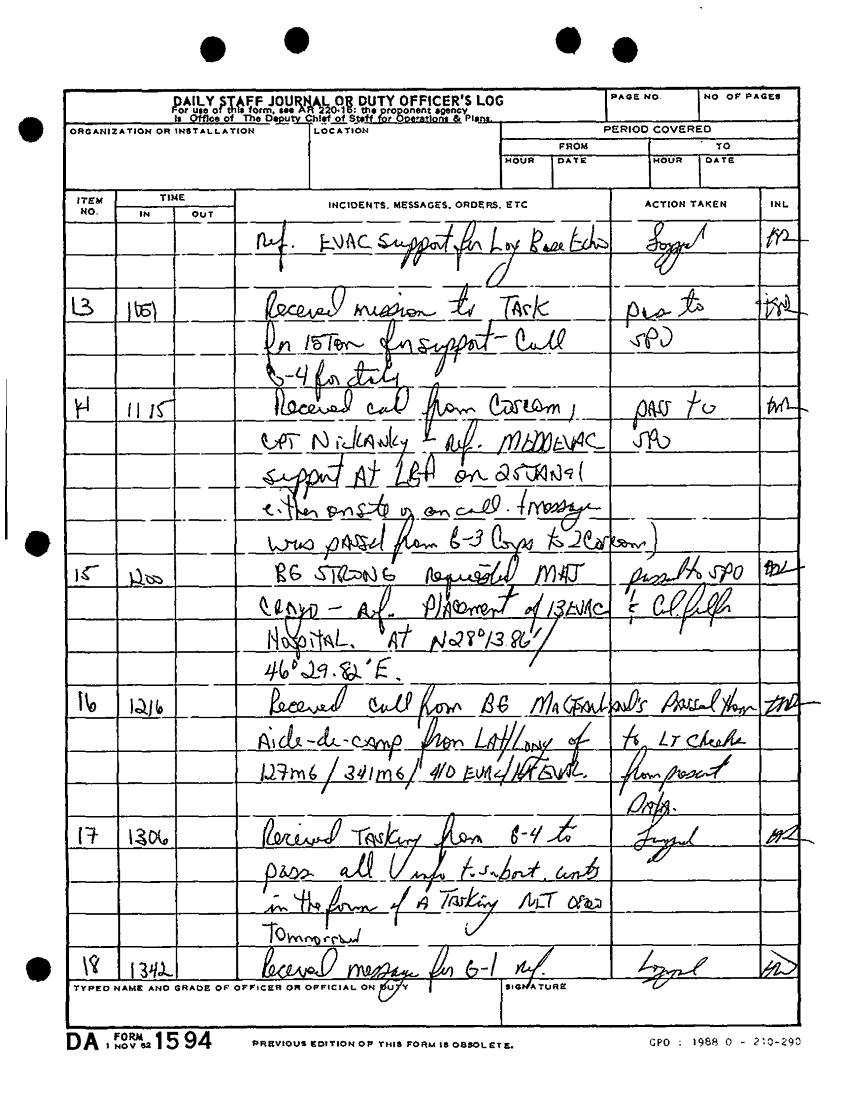 DAILY STAFF JOURNAL OR DUTY OFFICER'S LOG
For use of this form, see AR 220-15: the proponent agency
is Office of The Deputy Chief of Staff for Operations & Plans.
PAGE NO.
NO OF PAGES
ORGANIZATION OR INSTALLATION
LOCATION
PERIOD COVERED
FROM
TO
HOUR
DATE
HOUR
DATE
ITEM NO.
TIME
IN
OUT
INCIDENTS, MESSAGES, ORDERS, ETC
ACTION TAKEN
INL
Ref. EVAC support for Log Base Echo Logged
13 Received mission to TASK pass to
for 15 Ton for support - Call SPO
G-4 for
14 1115 Received call from Coscom, pass to
CPT Nickanky - ref. MEDDEVAC SPO
support At LBA on 25JAN91
either on site or on call. + message
was passed from G-3 Corps to 2Coscom)
15 1200 BG STRONG requested MAJ passed to SPO
- Ref. Placement of 13EVAC & Col.
Hospital. At N28°13.86'/
46°29.82'E.
16 1216 Received call from BG Passed them
Aide-de-camp from LAT/Long of to LT Cheeks
127MG / 341MG / 410 EVAC/ EVAC. from present
DATA.
17 1306 Received TASKing from G-4 to Logged
pass all info to subort. units
in the form of A Tasking NLT 0800
Tomorrow
18 1342 Received message for G-1 ref. Logged
TYPED NAME AND GRADE OF OFFICER OR OFFICIAL ON DUTY
SIGNATURE
DA FORM 1 NOV 62 1594
PREVIOUS EDITION OF THIS FORM IS OBSOLETE.
GPO : 1988 O - 210-290